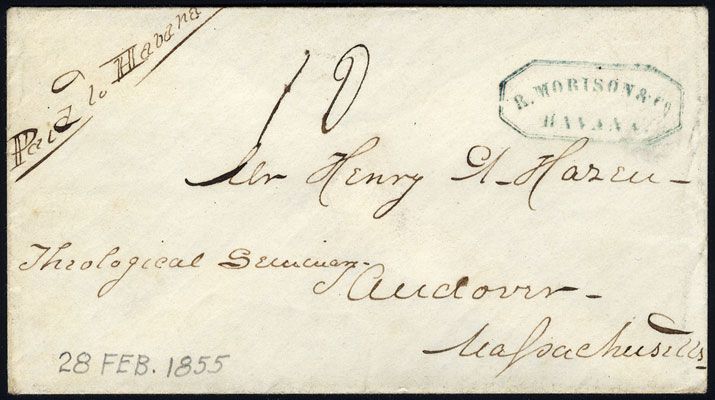 Paid to Havana
10
R. MORISON & CO
HAVANA.
Mr Henry A. Hazen
Theological Seminary
Andover
Massachusetts
28 FEB. 1855